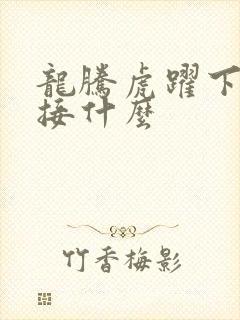 龍騰虎躍下
接什麼
竹香梅影